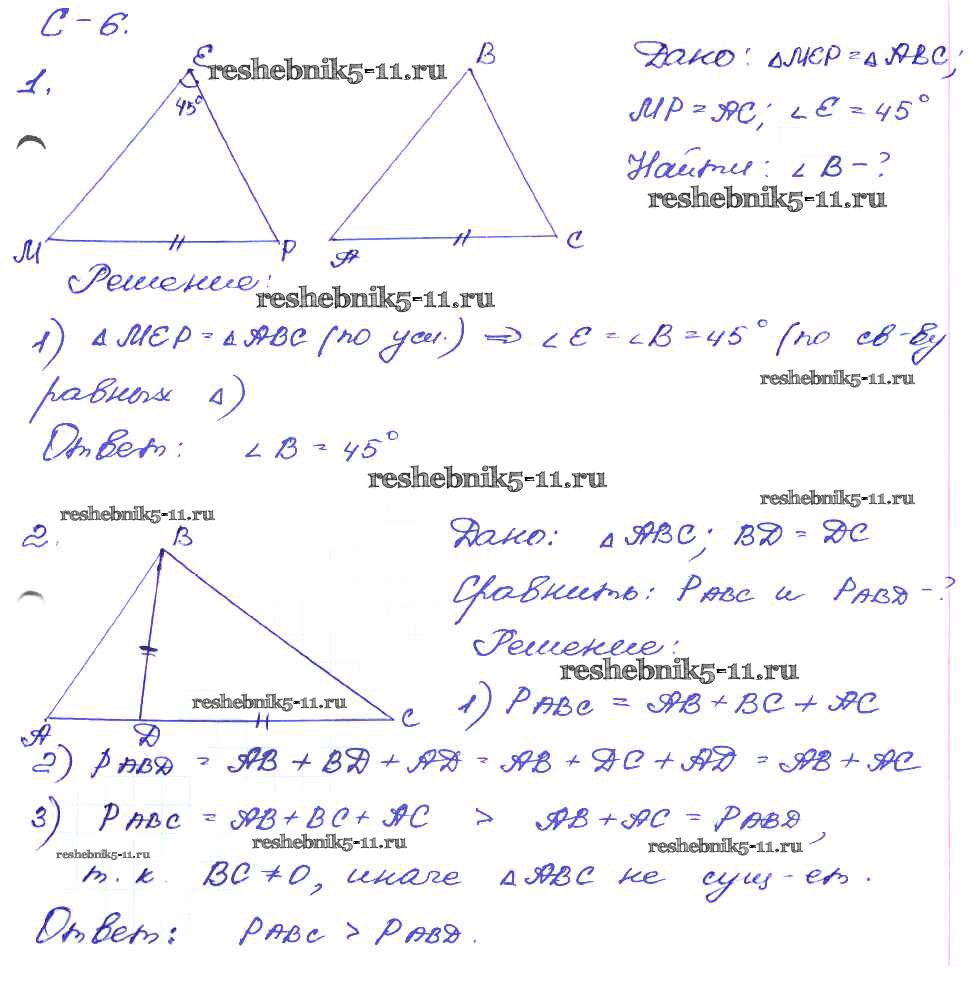 С-6.
1.
E
45°
M
P
B
A
C
reshebnik5-11.ru
Дано: △MEP = △ABC;
MP = AC; ∠E = 45°
Найти: ∠B - ?
reshebnik5-11.ru
Решение:
reshebnik5-11.ru
1) △MEP = △ABC (по усл.) ⇒ ∠E = ∠B = 45° (по св-ву
reshebnik5-11.ru
равных △)
Ответ: ∠B = 45°
reshebnik5-11.ru
reshebnik5-11.ru
reshebnik5-11.ru
2.
B
A
D
C
reshebnik5-11.ru
Дано: △ABC; BD = DC
Сравнить: PABC и PABD - ?
Решение:
reshebnik5-11.ru
1) PABC = AB + BC + AC
2) PABD = AB + BD + AD = AB + DC + AD = AB + AC
3) PABC = AB + BC + AC > AB + AC = PABD,
reshebnik5-11.ru
reshebnik5-11.ru
reshebnik5-11.ru
т.к. BC ≠ 0, иначе △ABC не сущ-ет.
Ответ: PABC > PABD.